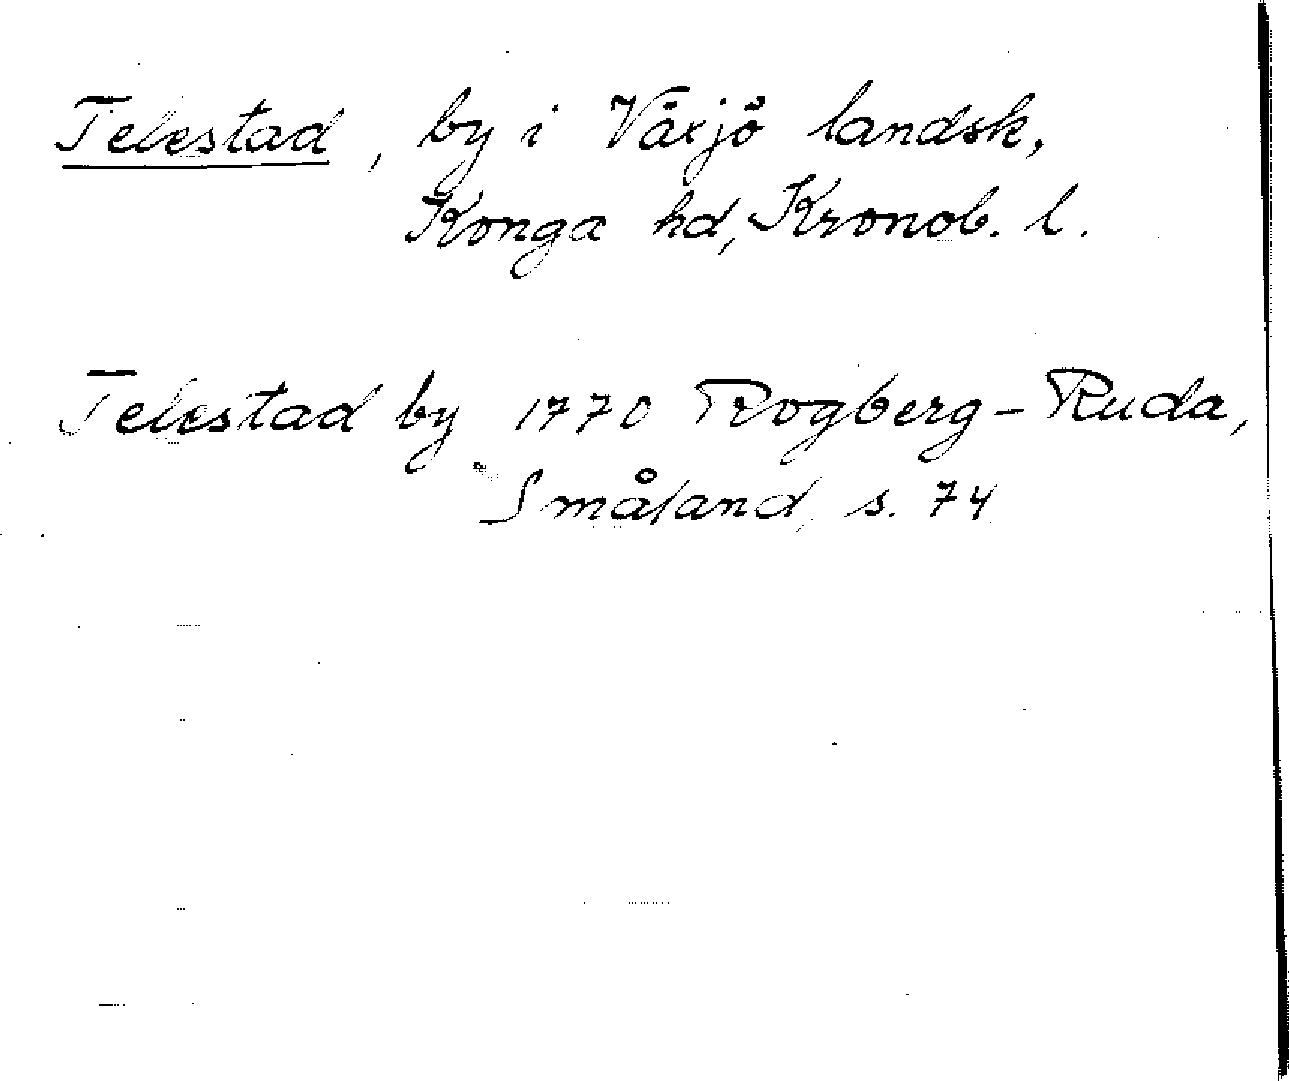 Telestad, by i Växjö landsk,
Konga hd, Kronob. l.
Telestad by 1770 Rogberg-Ruda,
Småland s. 74